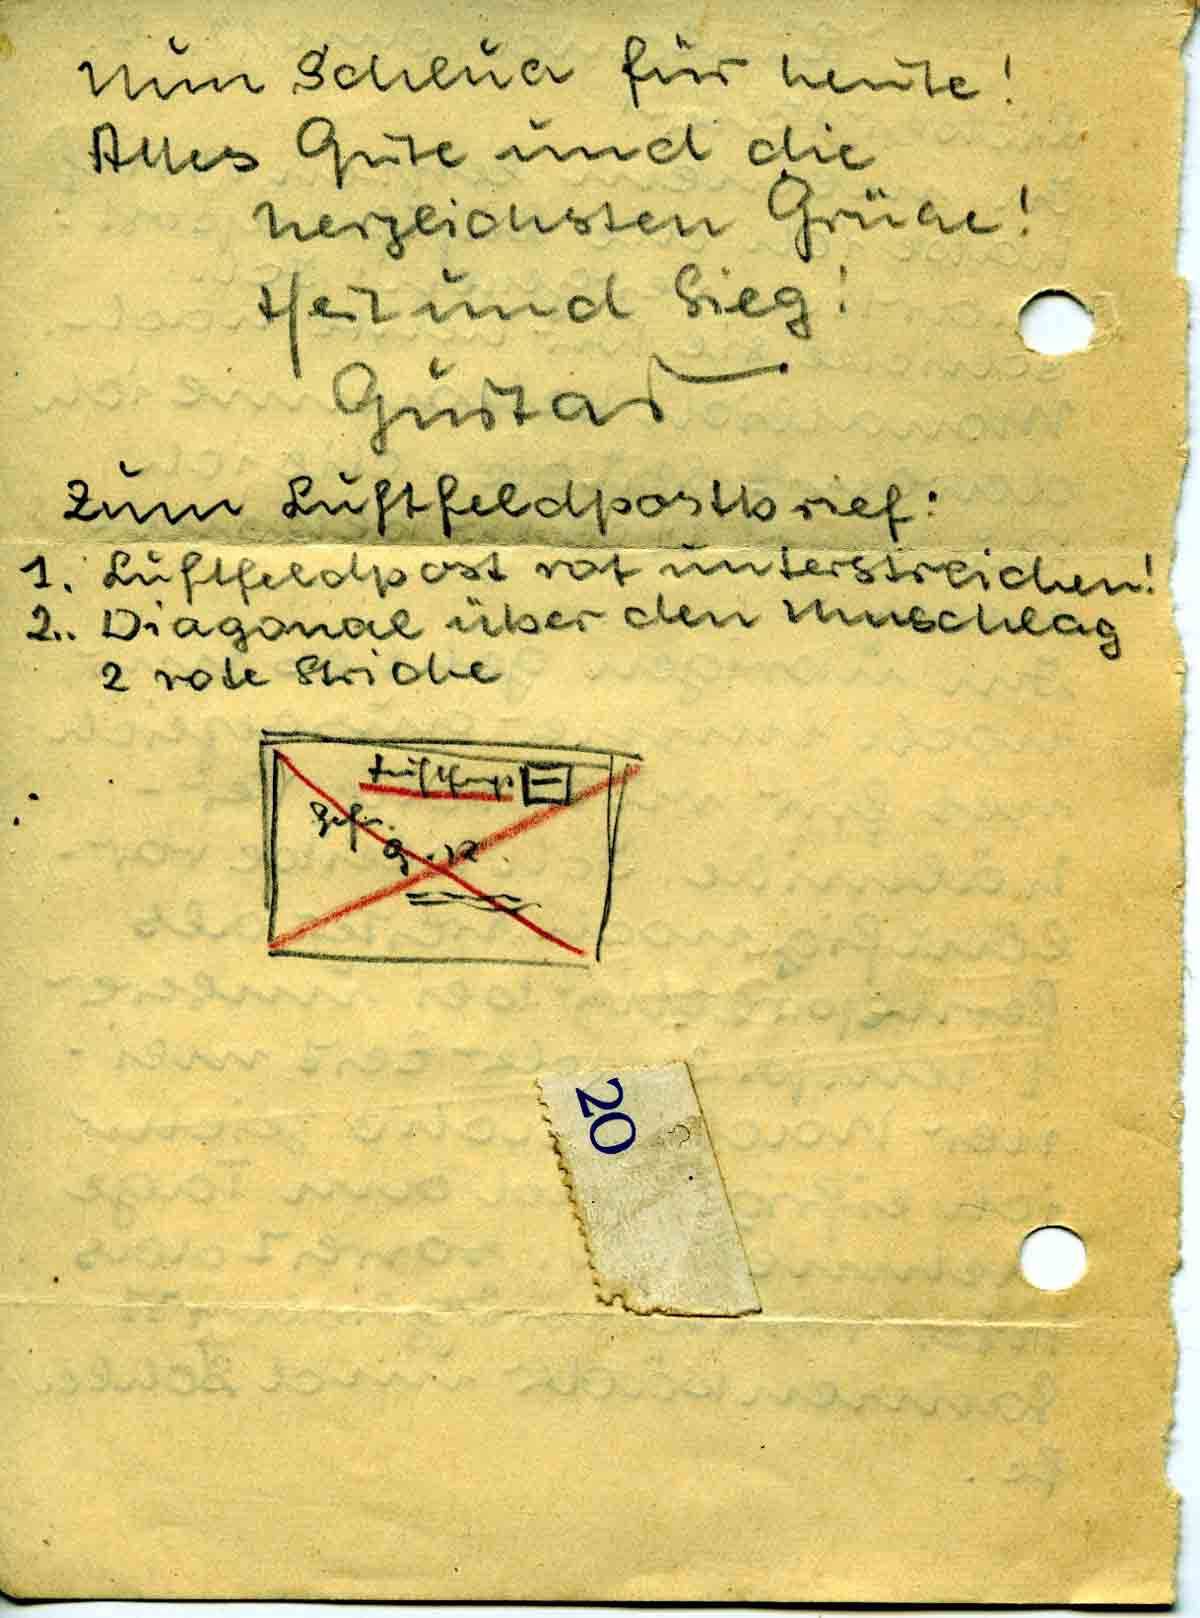 Nun Schluß für heute!
Alles Gute und die
herzlichsten Grüße!
Heil und Sieg!
Gustav
Zum Luftfeldpostbrief:
1. Luftfeldpost rot unterstreichen!
2. Diagonal über den Umschlag
2 rote Striche
20